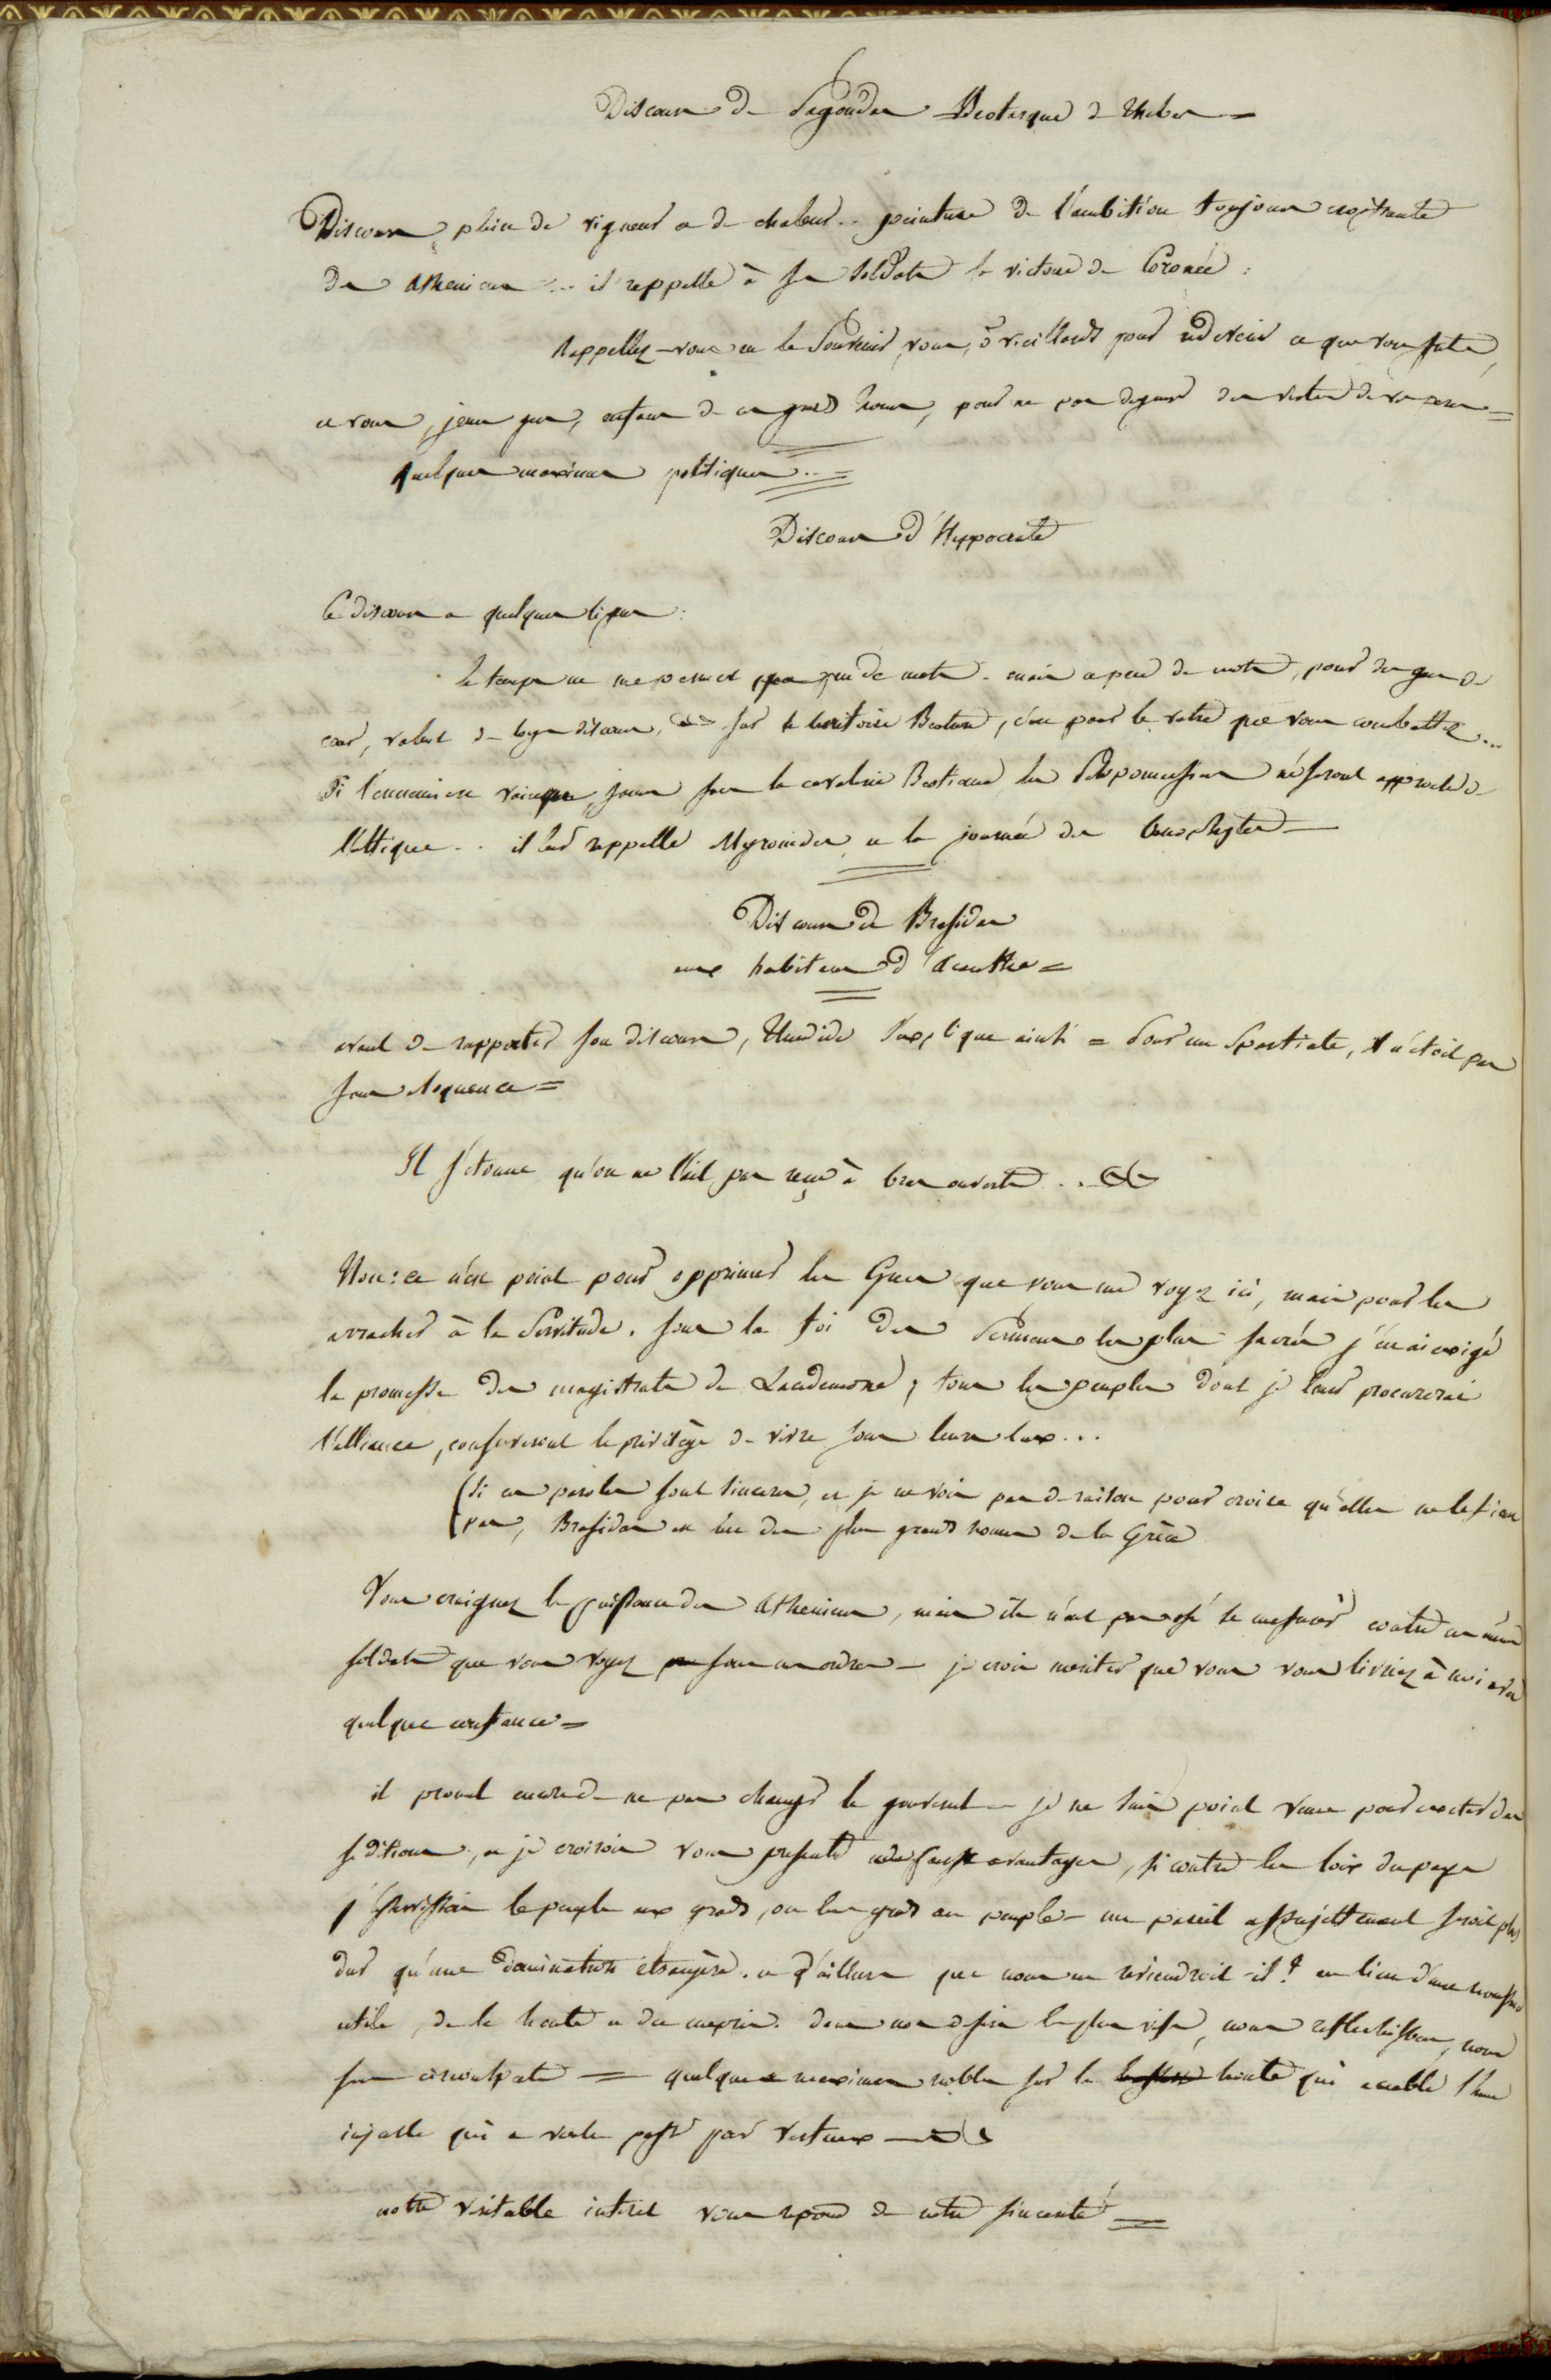 Discours de Pagondas Béotarque de Thebes =
Discours plein de vigueur et de chaleur... peinture de l'ambition toujours croissante
des Atheniens ... il rappelle à ses soldats la victoire de Coronée :
Rappellez-vous en le souvenir, vous, ô vieillards pour redevenir ce que vous futes,
et vous, jeunes gens, enfans de ces grands hommes, pour ne pas degener des vertus de vos peres =
quelques maximes politiques .. =
Discours d'Hyppocrate
Ce discours a quelques lignes :
le temps ne me permet que peu de mots. mais a peu de mots, pour des gens de
cœur, valent de longs discours. sur le territoire Beotien, c'est pour le votre que vous combattez...
Si l'ennemi est vaincu, jamais sans la cavalerie Beotienne, les Peloponnessiens n'oseront approcher de
l'Attique .. il leur rappelle Myronides, et la journée des Oenophytes —
Discours de Brasidas
aux habitans d'Acanthe =
avant de rapporter son discours, Thucidide s'explique ainsi = Pour un Spartiate, il n'étoit pas
sans eloquence =
Il s'étonne qu'on ne l'ait pas reçu à bras ouverts ..
Non : ce n'est point pour opprimer les Grecs que vous me voyez ici, mais pour les
arracher à la servitude. sous la foi des sermens les plus sacrés j'en ai exigé
la promesse des magistrats de Lacedemone ; tous les peuples dont je leur procurerai
l'alliance, conserveront le privilège de vivre sous leurs loix...
(si ces paroles sont sinceres, et je ne vois pas de raison pour croire qu'elles ne le soient
pas, Brasidas est un des plus grands hommes de la Grèce
Vous craignez la puissance des Atheniens, mais ils n'ont pas osé se mesurer contre ces mêmes
soldats que vous voyez sous mes ordres — je crois meriter que vous vous livriez à moi avec
quelque confiance =
il promet encore de ne pas changer le gouvernement — je ne suis point venu pour exciter des
séditions, et je croirois vous presenter de faux avantages, si contre les loix du pays
j'asservissois le peuple aux grands, ou les grands au peuple — un pareil assujettissement seroit plus
dur qu'une domination étrangère. et d'ailleurs que nous en reviendroit-il ? au lieu d'une
utile, de la honte et du mepris. dans nos desirs les plus vifs, nous reflechissons, nous
sommes circonspects = quelques maximes nobles sur la honte qui accable l'homme
injuste qui a voulu passer pour vertueux —
notre veritable interet vous repond de notre sincerité =